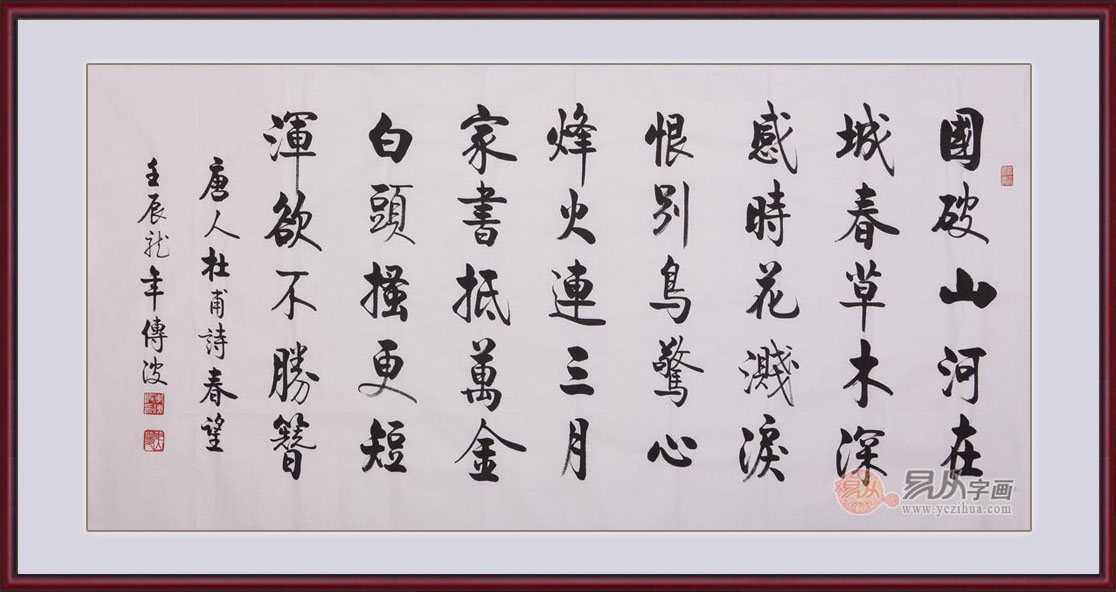 國破山河在
城春草木深
感時花濺淚
恨別鳥驚心
烽火連三月
家書抵萬金
白頭搔更短
渾欲不勝簪
唐人杜甫詩春望
壬辰龙年傳波
易从字画
www.yczihua.com